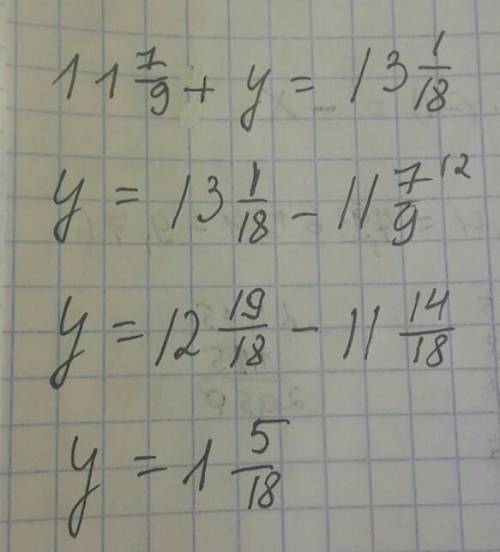 11 7/9 + y = 13 1/18
y = 13 1/18 - 11 7/9 12
y = 12 19/18 - 11 14/18
y = 1 5/18